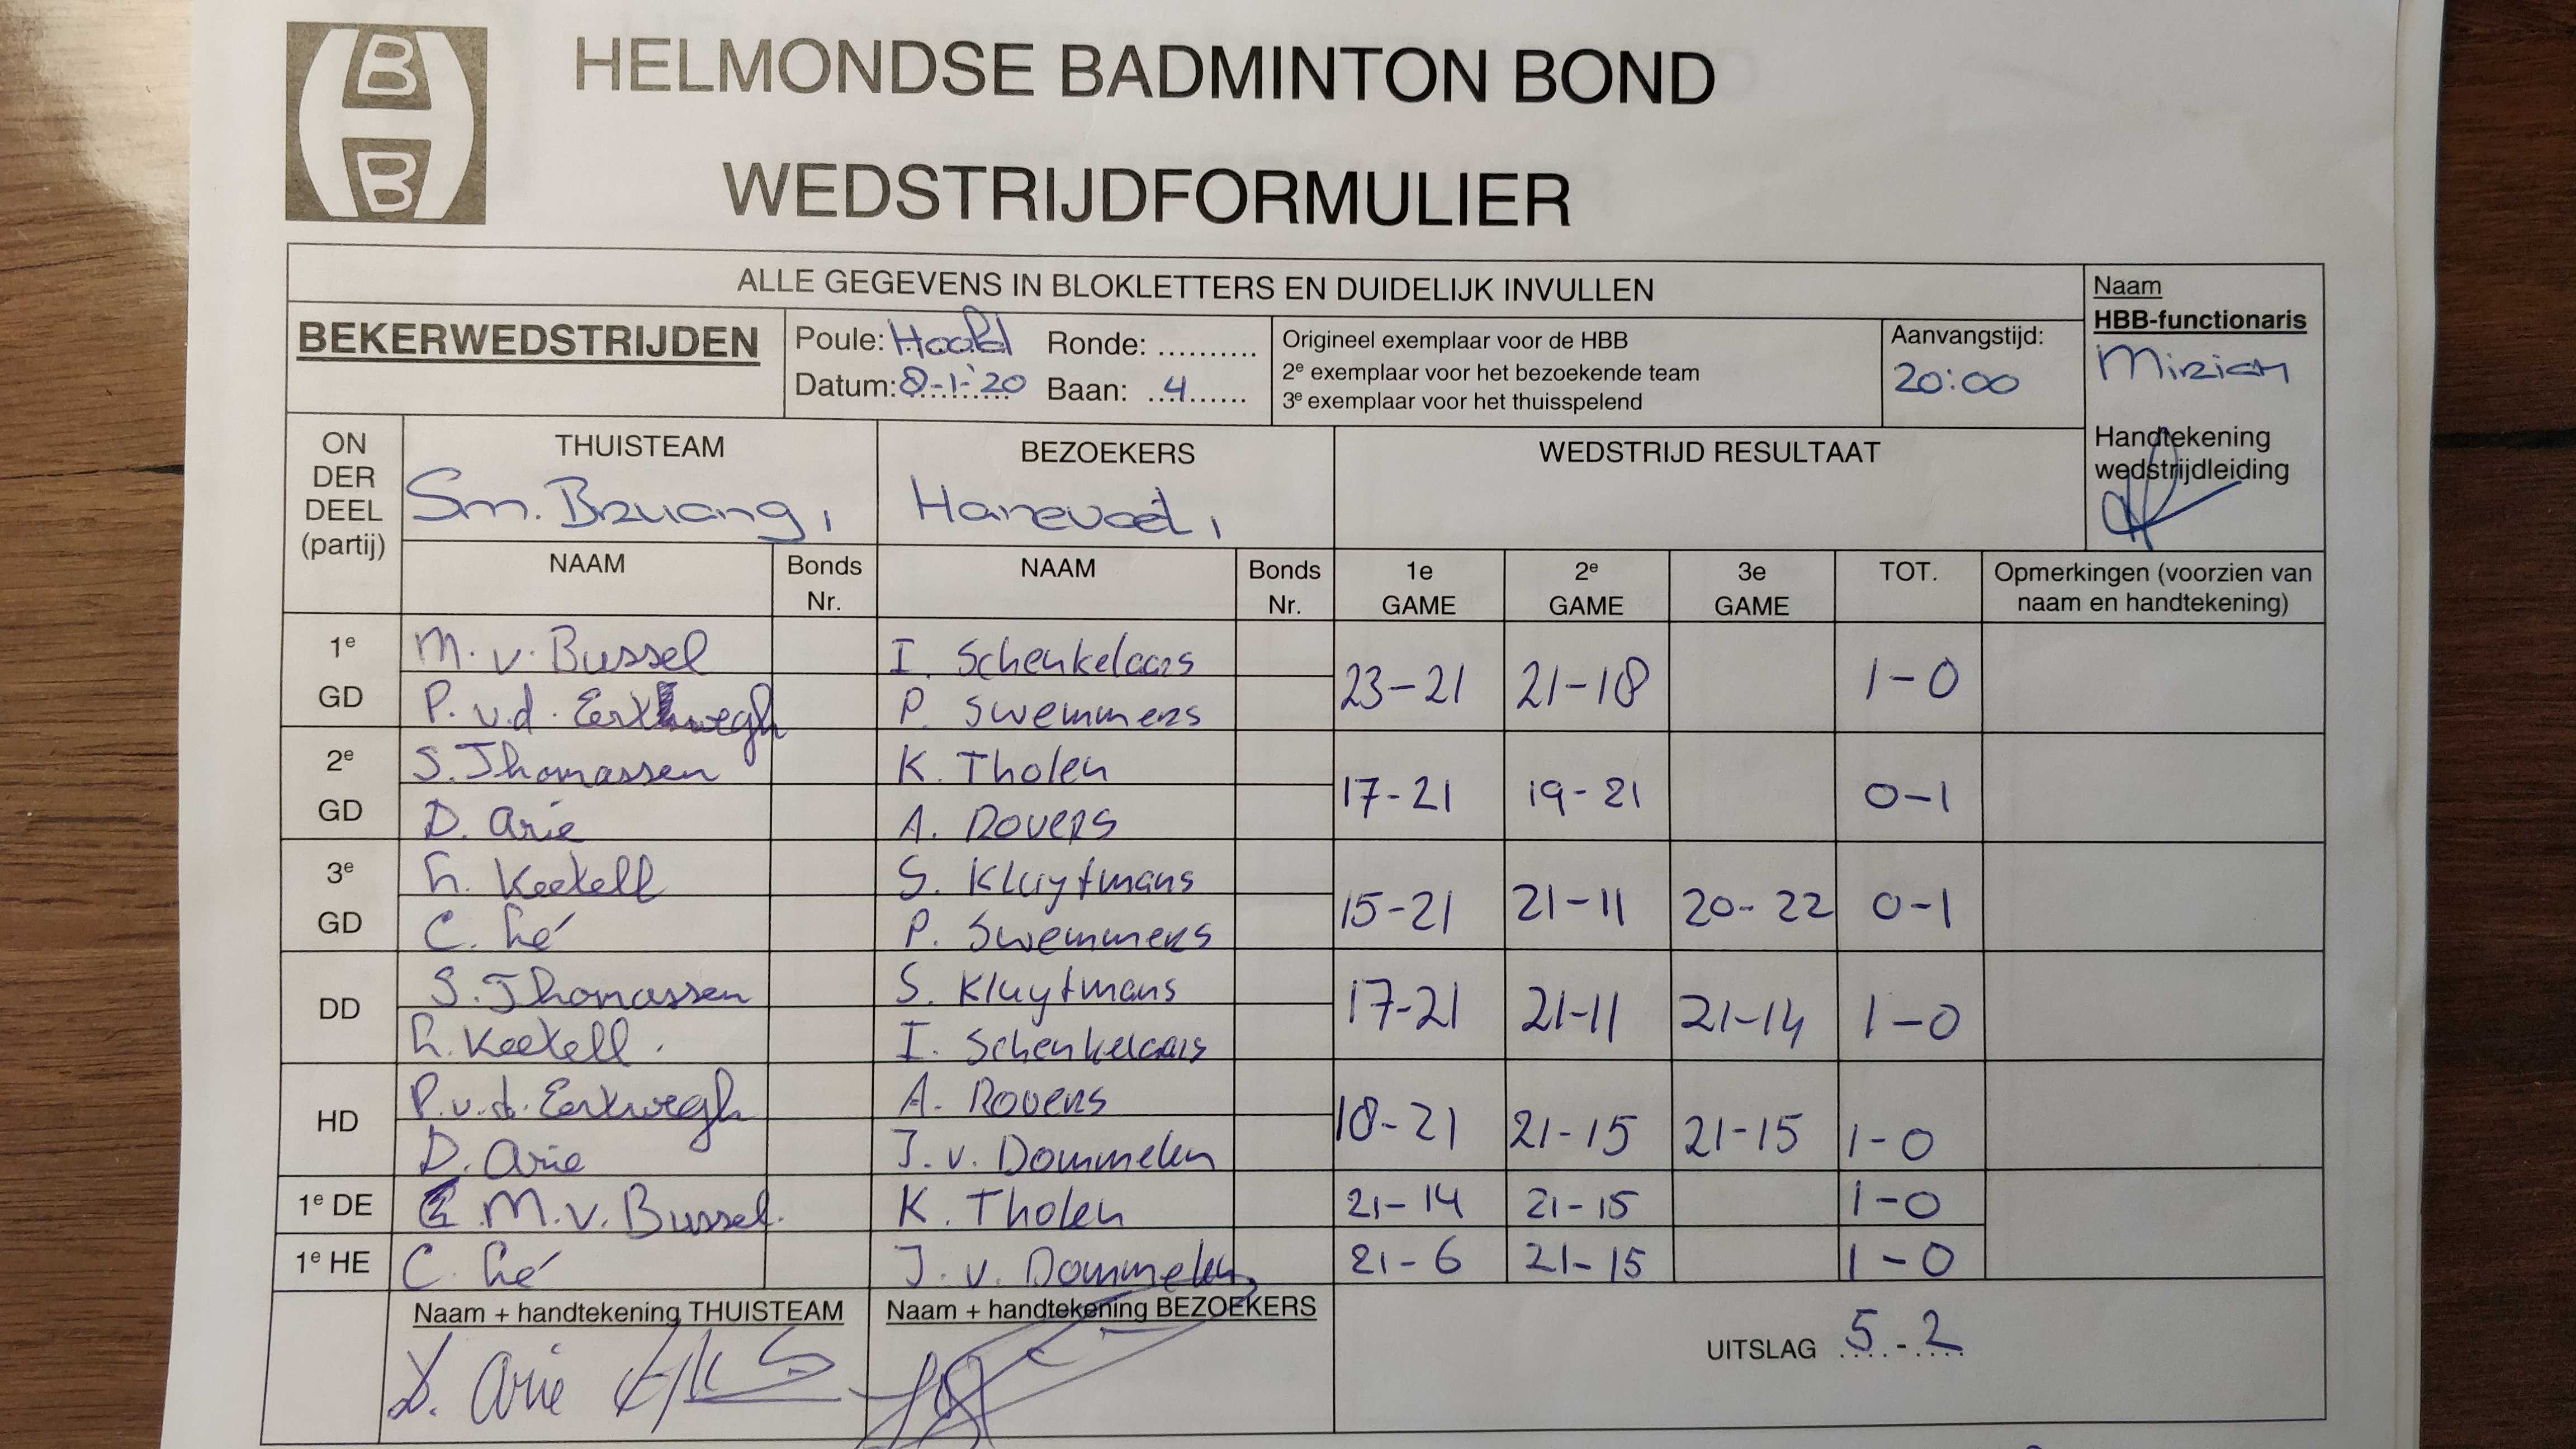 B
B
HELMONDSE BADMINTON BOND
WEDSTRIJDFORMULIER
ALLE GEGEVENS IN BLOKLETTERS EN DUIDELIJK INVULLEN
Naam
HBB-functionaris
Miriam
BEKERWEDSTRIJDEN
Poule: Hoofd Ronde: ..........
Datum: 8-1-'20 Baan: 4
Origineel exemplaar voor de HBB
2e exemplaar voor het bezoekende team
3e exemplaar voor het thuisspelend
Aanvangstijd:
20:00
Handtekening
wedstrijdleiding
ON
DER
DEEL
(partij)
THUISTEAM
Sm. Brvang 1
BEZOEKERS
Hanevoet 1
WEDSTRIJD RESULTAAT
NAAM Bonds Nr. NAAM Bonds Nr. 1e GAME 2e GAME 3e GAME TOT. Opmerkingen (voorzien van naam en handtekening)
1e M. v. Bussel I. Schenkelaars
GD P. v.d. Eerkwegh P. Swemmers
23-21 21-18 1-0
2e S. Thomassen K. Tholen
GD D. Arie A. Rovers
17-21 19-21 0-1
3e L. Keetell S. Kluytmans
GD C. Lé P. Swemmers
15-21 21-11 20-22 0-1
DD S. Thomassen S. Kluytmans
L. Keetell. I. Schenkelaars
17-21 21-11 21-14 1-0
HD P.v.d. Eerkwegh A. Rovers
D. Arie J. v. Dommelen
18-21 21-15 21-15 1-0
1e DE M.v. Bussel. K. Tholen 21-14 21-15 1-0
1e HE C. Lé J. v. Dommelen 21-6 21-15 1-0
Naam + handtekening THUISTEAM
D. Arie
Naam + handtekening BEZOEKERS
UITSLAG 5-2